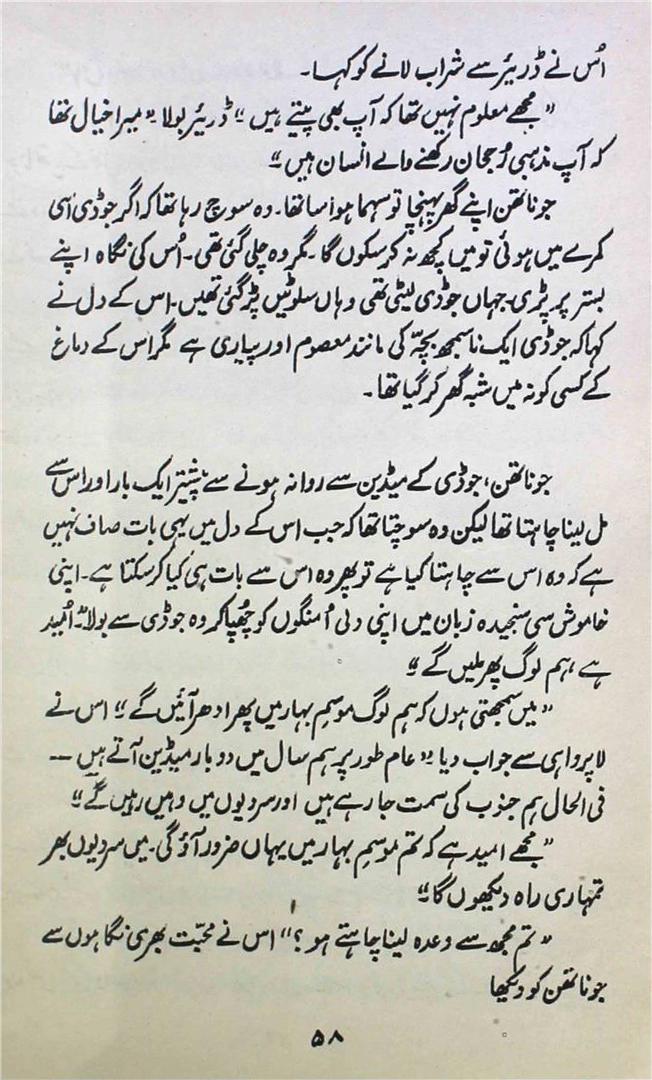 اُس نے ڈریئر سے شراب لانے کو کہا۔
”مجھے معلوم نہیں تھا کہ آپ بھی پیتے ہیں“ ڈریئر بولا ”میرا خیال تھا
کہ آپ مذہبی رُجحان رکھنے والے انسان ہیں“
جوناتھن اپنے گھر پہنچا تو سہما ہوا سا تھا۔ وہ سوچ رہا تھا کہ اگر جوڈی اُسی
کمرے میں ہوئی تو میں کچھ نہ کر سکوں گا۔ مگر وہ چلی گئی تھی۔ اُس کی نگاہ اپنے
بستر پر پڑی۔ جہاں جوڈی لیٹی تھی وہاں سلوٹیں پڑ گئی تھیں۔ اس کے دل نے
کہا کہ جوڈی ایک ناسمجھ بچّہ کی مانند معصوم اور پیاری ہے مگر اس کے دماغ
کے کسی کونہ میں شبہ گھر کر گیا تھا۔
جوناتھن، جوڈی کے میڈین سے روانہ ہونے سے پیشتر ایک بار اور اس سے
مل لینا چاہتا تھا لیکن وہ سوچتا تھا کہ جب اس کے دل میں یہی بات صاف نہیں
ہے کہ وہ اس سے چاہتا کیا ہے تو پھر وہ اس سے بات ہی کیا کر سکتا ہے۔ اپنی
خاموش سی سنجیدہ زبان میں اپنی دلی اُمنگوں کو چُھپا کر وہ جوڈی سے بولا ”اُمید
ہے، ہم لوگ پھر ملیں گے“
”میں سمجھتی ہوں کہ ہم لوگ موسمِ بہار میں پھر ادھر آئیں گے“ اس نے
لاپرواہی سے جواب دیا ”عام طور پر ہم سال میں دو بار میڈین آتے ہیں ——
فی الحال ہم جنوب کی سمت جا رہے ہیں اور سردیوں میں وہیں رہیں گے“
”مجھے امید ہے کہ تم موسمِ بہار میں یہاں ضرور آؤ گی۔ میں سردیوں بھر
تمہاری راہ دیکھوں گا“
”تم مجھ سے وعدہ لینا چاہتے ہو؟“ اس نے محبّت بھری نگاہوں سے
جوناتھن کو دیکھا
۵۸